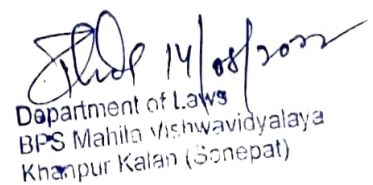 14/08/2022
Department of Laws
BPS Mahila Vishwavidyalaya
Khanpur Kalan (Sonepat)